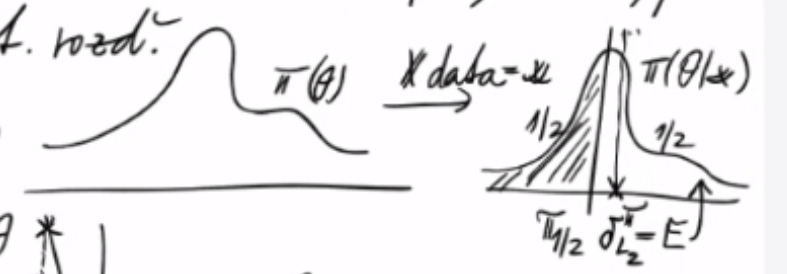 1. rozd.
π(θ)
X data = x
π(θ|x)
1/2
1/2
π̃1/2
δ^π_L2 = E